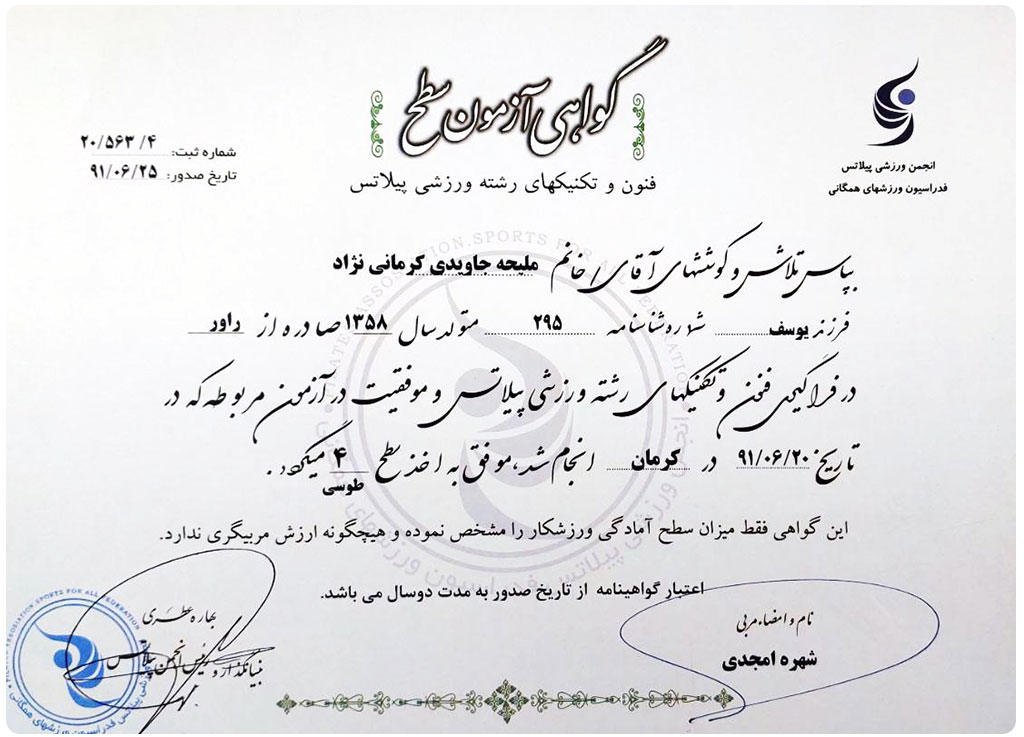 گواهی آزمون سطح
فنون و تکنیکهای رشته ورزشی پیلاتس
انجمن ورزشی پیلاتس
فدراسیون ورزشهای همگانی
شماره ثبت: ۲۰/۵۶۳/۴
تاریخ صدور: ۹۱/۰۶/۲۵
بپاس تلاش و کوششهای آقای / خانم ملیحه جاویدی کرمانی نژاد
فرزند یوسف شماره شناسنامه ۲۹۵ متولد سال ۱۳۵۸ صادره از راور
در فراگیری فنون و تکنیکهای رشته ورزشی پیلاتس و موفقیت در آزمون مربوطه که در
تاریخ ۹۱/۰۶/۲۰ در کرمان انجام شد، موفق به اخذ سطح ۴ میگردد.
طوسی
این گواهی فقط میزان سطح آمادگی ورزشکار را مشخص نموده و هیچگونه ارزش مربیگری ندارد.
اعتبار گواهینامه از تاریخ صدور به مدت دوسال می باشد.
نام و امضاء مربی
شهره امجدی
بهاره عطری
بنیانگذار و رئیس انجمن پیلاتس